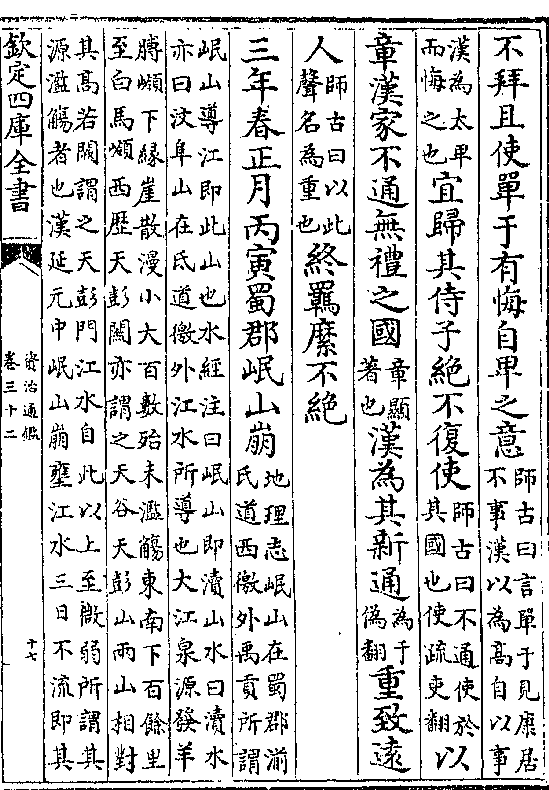 不拜且使單于有悔自卑之意師古曰言單于見康居不事漢以為高自以事
漢為太卑而悔之也宜歸其侍子絕不復使師古曰不通使於其國也使疏吏翻以
章漢家不通無禮之國章顯著也漢為其新通為于偽翻重致遠
人師古曰以此聲名為重也終羈縻不絕
三年春正月丙寅蜀郡岷山崩地理志岷山在蜀郡湔氐道西徼外禹貢所謂
岷山導江即此山也水經注曰岷山即瀆山水曰瀆水
亦曰汶阜山在氐道徼外江水所導也大江泉源發羊
膊嶺下緣崖散漫小大百數殆未濫觴東南下百餘里
至白馬嶺西歷天彭闕亦謂之天谷天彭山兩山相對
其高若闕謂之天彭門江水自此以上至微弱所謂其
源濫觴者也漢延元中岷山崩壅江水三日不流即其
欽定四庫全書
資治通鑑
卷三十二
十七